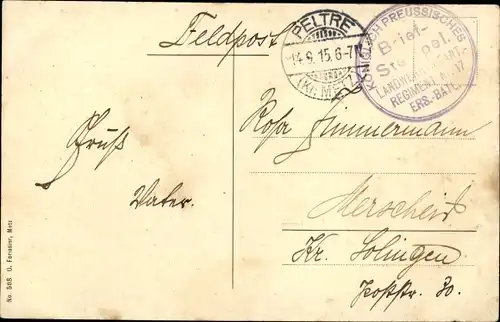 Feldpost
PELTRE
14.9.15.6-7
(Kr. METZ)
KÖNIGLICH PREUSSISCHES
Brief-
Stempel.
REGIMENT No. 17
ERS.-BATL.
Gruß
Vater.
Rosa Zimmermann
Merscheid
Kr. Solingen
Poststr. 30.
No. 568 G. Fernsner, Metz